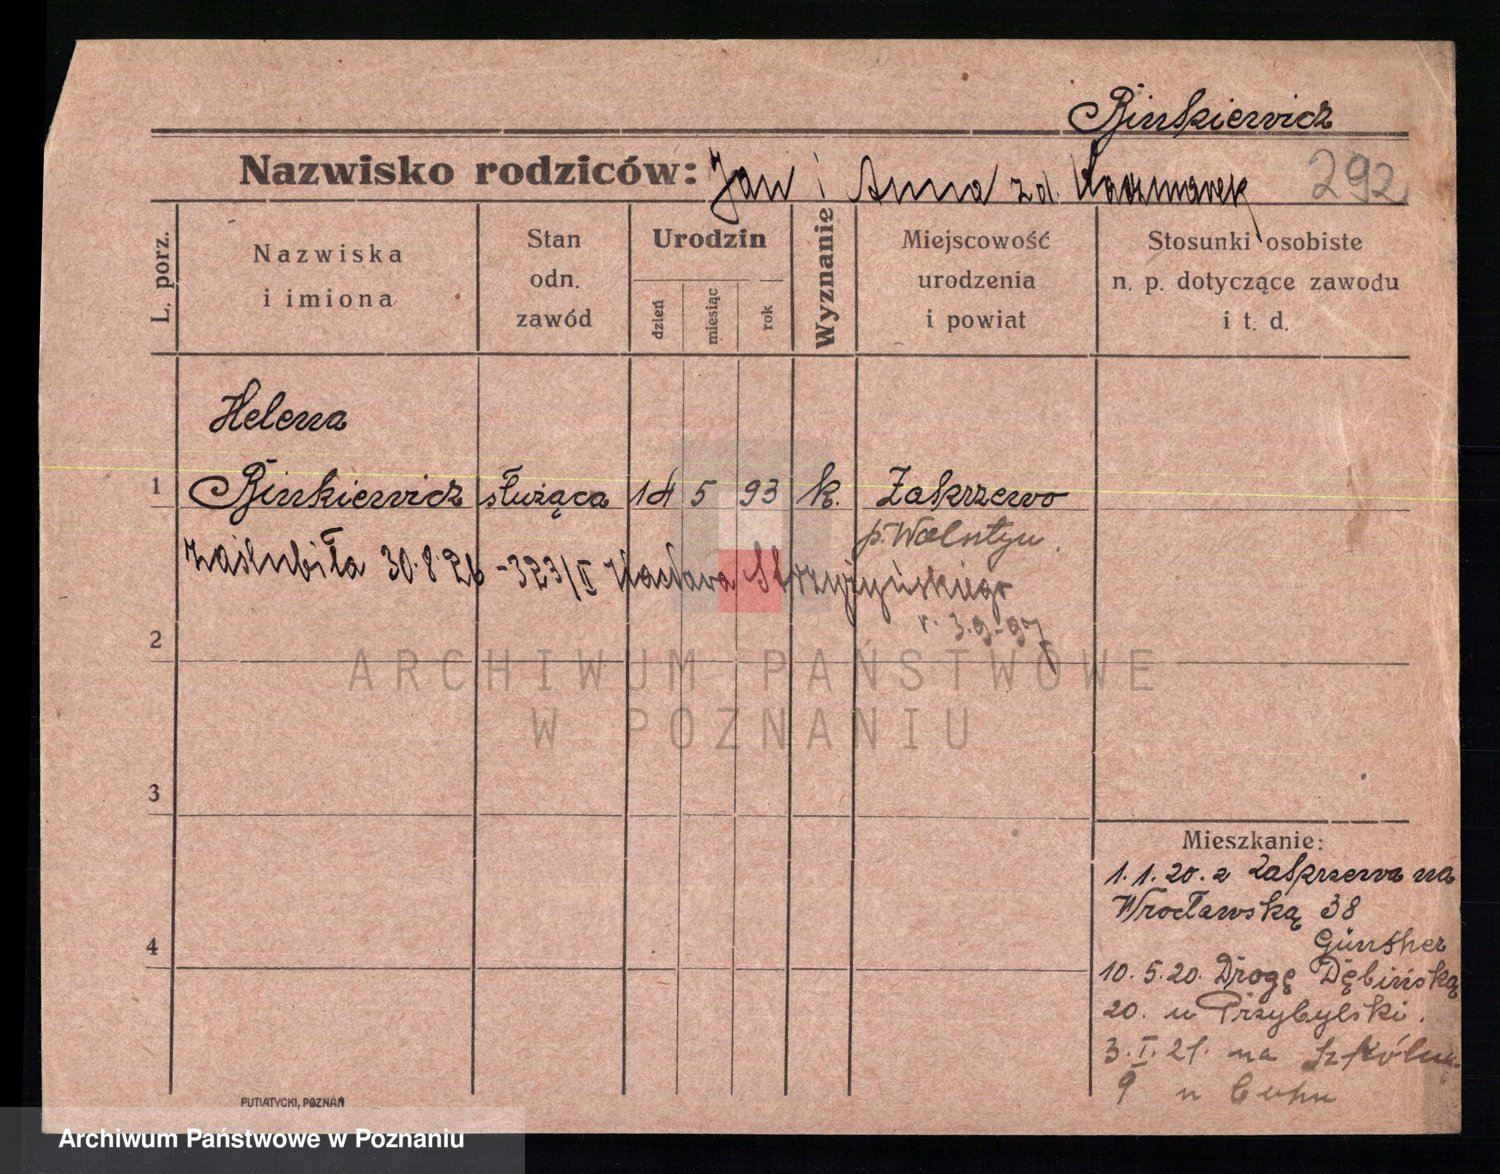 Binkiewicz
Nazwisko rodziców: Jan i Anna zd. Kaczmarek 292
L. porz.
Nazwiska
i imiona
Stan
odn.
zawód
Urodzin
dzień
miesiąc
rok
Wyznanie
Miejscowość
urodzenia
i powiat
Stosunki osobiste
n. p. dotyczące zawodu
i t. d.
Helena
1 Binkiewicz służąca 14 5 93 k. Zakrzewo
p. Wolsztyn.
zaślubiła 30.8.26 - 323/II Wacława Strzyżyńskiego
r. 3.9.97
2
ARCHIWUM PAŃSTWOWE
W POZNANIU
3
4
Mieszkanie:
1.1.20. z Zakrzewa na
Wrocławską 38
Günther
10.5.20. Drogę Dębińską
20. u Przybylski.
3.I.21. na Szkólną
9 u
PUTIATYCKI, POZNAŃ
Archiwum Państwowe w Poznaniu